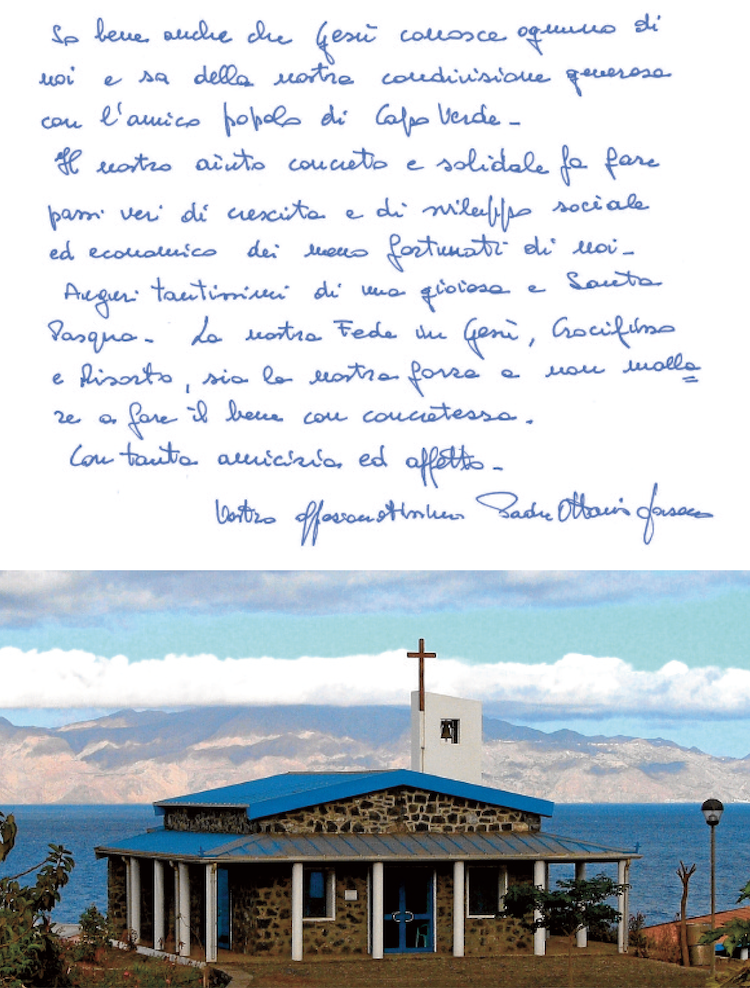 So bene anche che Gesù conosce ognuno di
noi e sa della nostra condivisione generosa
con l'amico popolo di Capo Verde -
Il nostro aiuto concreto e solidale fa fare
passi veri di crescita e di sviluppo sociale
ed economico dei meno fortunati di noi -
Auguri tantissimi di una gioiosa e Santa
Pasqua - La nostra Fede in Gesù, Crocifisso
e Risorto, sia la nostra forza a non molla
re a fare il bene con concretezza.
Con tanta amicizia ed affetto -
Vostro affezionatissimo Padre Ottavio Fasano